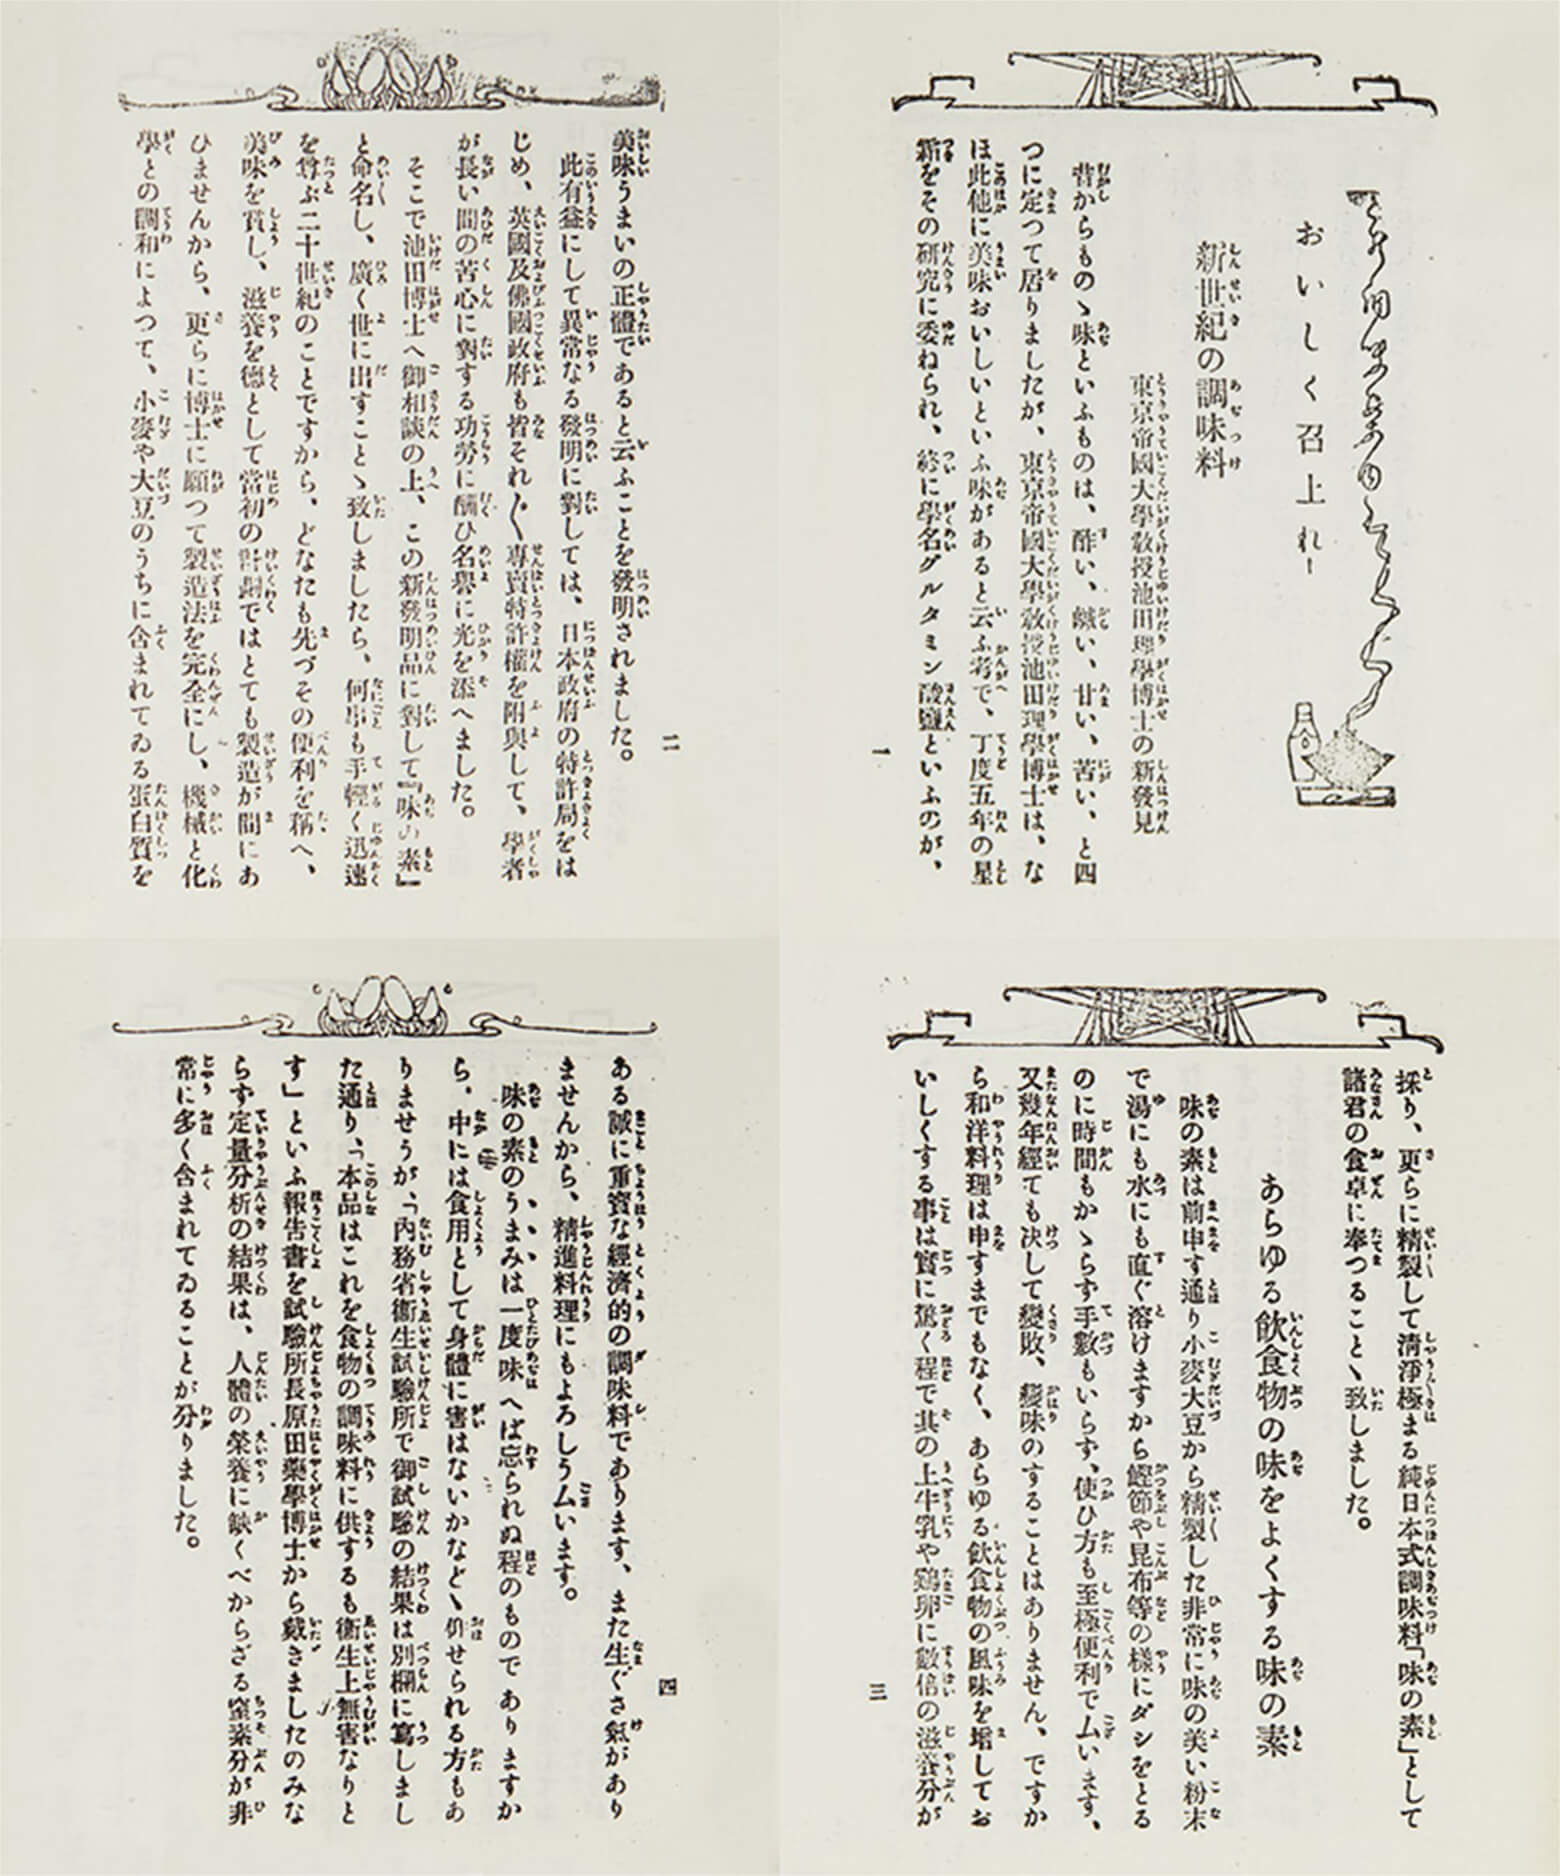 おいしく召上れ!
新世紀の調味料
東京帝國大學教授池田理學博士の新發見
昔からものゝ味といふものは、酢い、鹹い、甘い、苦い、と四
つに定つて居りましたが、東京帝國大學教授池田理學博士は、な
ほ此他に美味おいしいといふ味があると云ふ考で、丁度五年の星
霜をその研究に委ねられ、終に學名グルタミン酸鹽といふのが、
一
美味うまいの正體であると云ふことを發明されました。
此有益にして異常なる發明に對しては、日本政府の特許局をは
じめ、英國及佛國政府も皆それ〴〵專賣特許權を附與して、學者
が長い間の苦心に對する功勞に酬ひ名譽に光を添へました。
そこで池田博士へ御相談の上、この新發明品に對して『味の素』
と命名し、廣く世に出すことゝ致しましたら、何事も手輕く迅速
を尊ぶ二十世紀のことですから、どなたも先づその便利を稱へ、
美味を賞し、滋養を德として當初の計劃ではとても製造が間にあ
ひませんから、更らに博士に願つて製造法を完全にし、機械と化
學との調和によつて、小麥や大豆のうちに含まれてゐる蛋白質を
二
採り、更らに精製して淸淨極まる純日本式調味料「味の素」として
諸君の食卓に奉つることゝ致しました。
あらゆる飲食物の味をよくする味の素
味の素は前申す通り小麥大豆から精製した非常に味の美い粉末
で湯にも水にも直ぐ溶けますから鰹節や昆布等の樣にダシをとる
のに時間もかゝらず手數もいらず、使ひ方も至極便利でムいます、
又幾年經ても決して變敗、變味のすることはありません、ですか
ら和洋料理は申すまでもなく、あらゆる飲食物の風味を增してお
いしくする事は實に驚く程で其の上牛乳や鷄卵に數倍の滋養分が
三
ある誠に重寶な經濟的の調味料であります、また生ぐさ氣があり
ませんから、精進料理にもよろしうムいます。
味の素のうまみは一度味へば忘られぬ程のものでありますか
ら、中には食用として身體に害はないかなどゝ仰せられる方もあ
りませうが、「內務省衞生試驗所で御試驗の結果は別欄に寫しまし
た通り、「本品はこれを食物の調味料に供するも衞生上無害なりと
す」といふ報吿書を試驗所長原田藥學博士から戴きましたのみな
らず定量分析の結果は、人體の榮養に缺くべからざる窒素分が非
常に多く含まれてゐることが分りました。
四